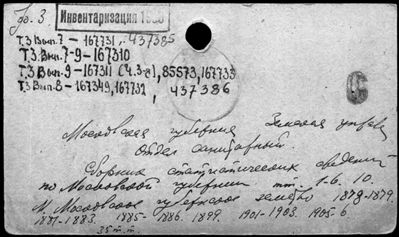 Гр. 3
Инвентаризация
Т.3 Вып.7 – 167731, 437385
Т.3. Вып.7-9 – 167310
Т.3 Вып.9 – 167311 (ч.3-я), 85573, 167733
Т.3 Вып.8 – 167349, 167732, 437386
Московская губерния Земская управа
Отдел санитарный
Сборник статистических сведений
по Московской губернии тт. 1-6. 10.
М. Московское губернское земство 1878-1879.
1881-1883. 1885-1886. 1899. 1901-1903. 1905-6
35 т.т.